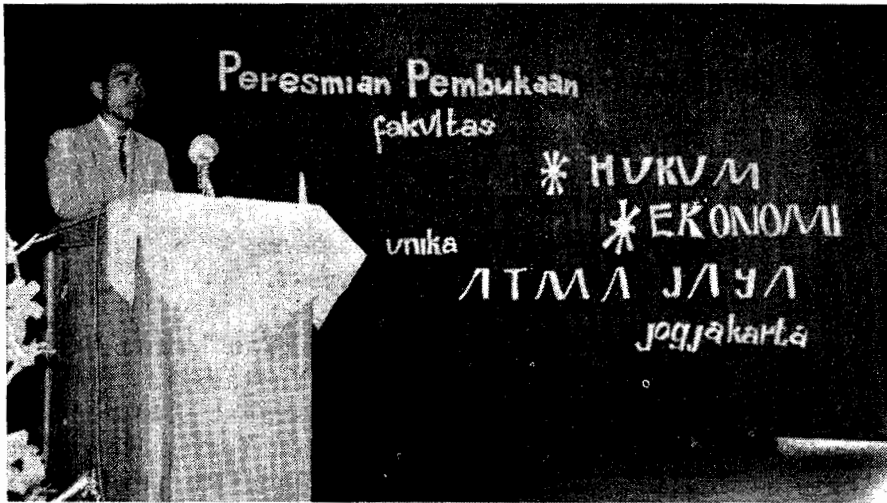 Peresmian Pembukaan
fakultas
* HUKUM
* EKONOMI
unika
ATMA JAYA
jogjakarta